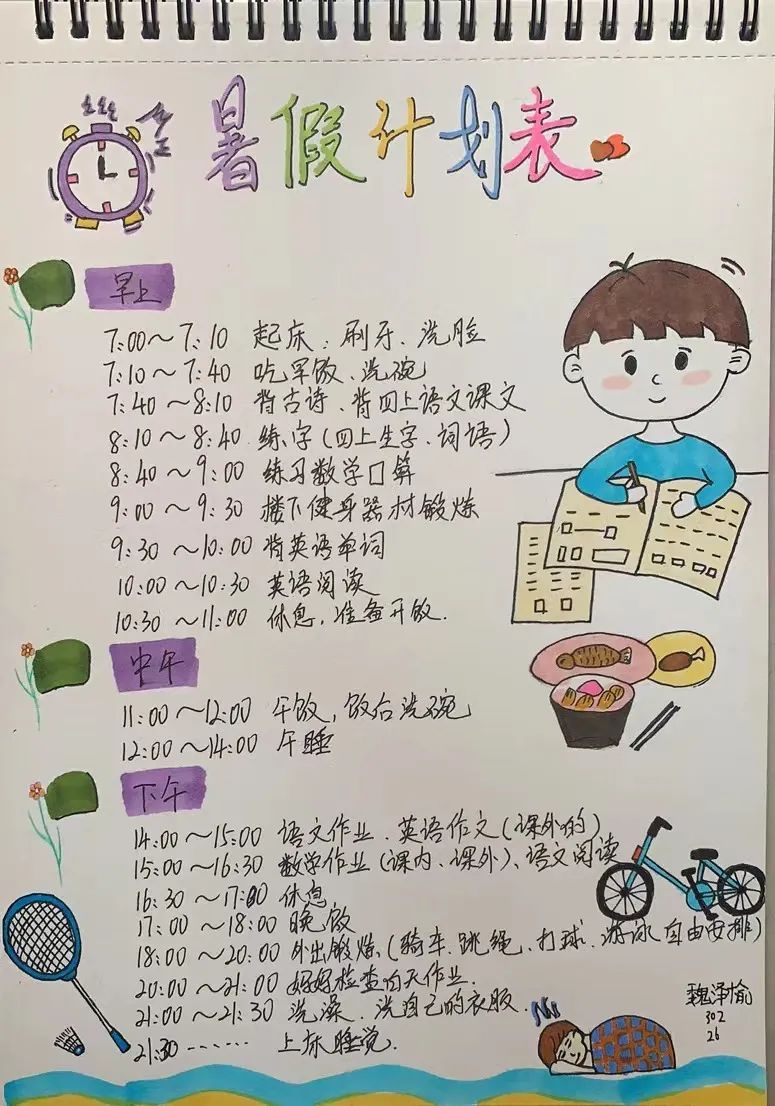 暑假计划表
早上
7:00～7:10 起床、刷牙、洗脸
7:10～7:40 吃早饭、洗碗
7:40～8:10 背古诗、背四上语文课文
8:10～8:40 练字(四上生字、词语)
8:40～9:00 练习数学口算
9:00～9:30 楼下健身器材锻炼
9:30～10:00 背英语单词
10:00～10:30 英语阅读
10:30～11:00 休息,准备开饭.
中午
11:00～12:00 午饭,饭后洗碗
12:00～14:00 午睡
下午
14:00～15:00 语文作业、英语作文(课外的)
15:00～16:30 数学作业(课内、课外)、语文阅读
16:30～17:00 休息
17:00～18:00 晚饭
18:00～20:00 外出锻炼(骑车、跳绳、打球、游泳自由安排)
20:00～21:00 好好检查白天作业.
21:00～21:30 洗澡、洗自己的衣服.
21:30······· 上床睡觉.
魏泽愉
302
26